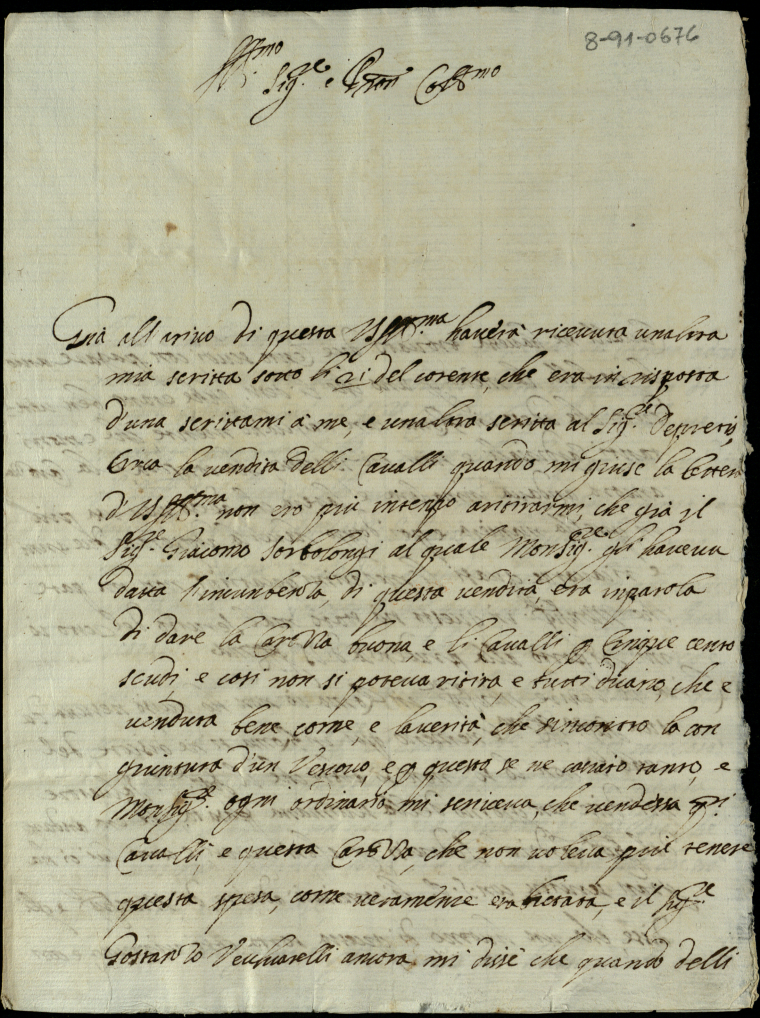 8-91-0676
Ill.mo
Sig.re e Pron Coll.mo
Già all arivo di questa VS Ill.ma haverà ricevuta unaltra
mia scritta sotto li 21 del corente, che era in risposta
d'una scrittami à me, e unaltra scritta al Sig.re Depretis,
Circa la vendita delli Cavalli quando mi giuse la lettera
d'VS Ill.ma non ero più intempo aritirarmi, che già il
Sig.re Giacomo Sorbolongi al quale Monsig.re gli haveva
data l'incunbenza, di questa vendita, era inparola
di dare la Carozza buona, e li Cavalli p Cinque cento
scudi, e cosi non si poteva ritira, e tutti dicano, che e
venduta bene come, e laverità, che s'incontro la con
giuntura d'un Vescovo, e p questo se ne cavato tanto, e
Monsig.re ogni ordinario mi scriveva, che vendessa q.ti
Cavalli, e questa Carozza, che non voleva più tenere
questa spesa, come veramente era buttata, e il Sig.re
Gostanzo Vechiarelli ancora mi disse che quando delli